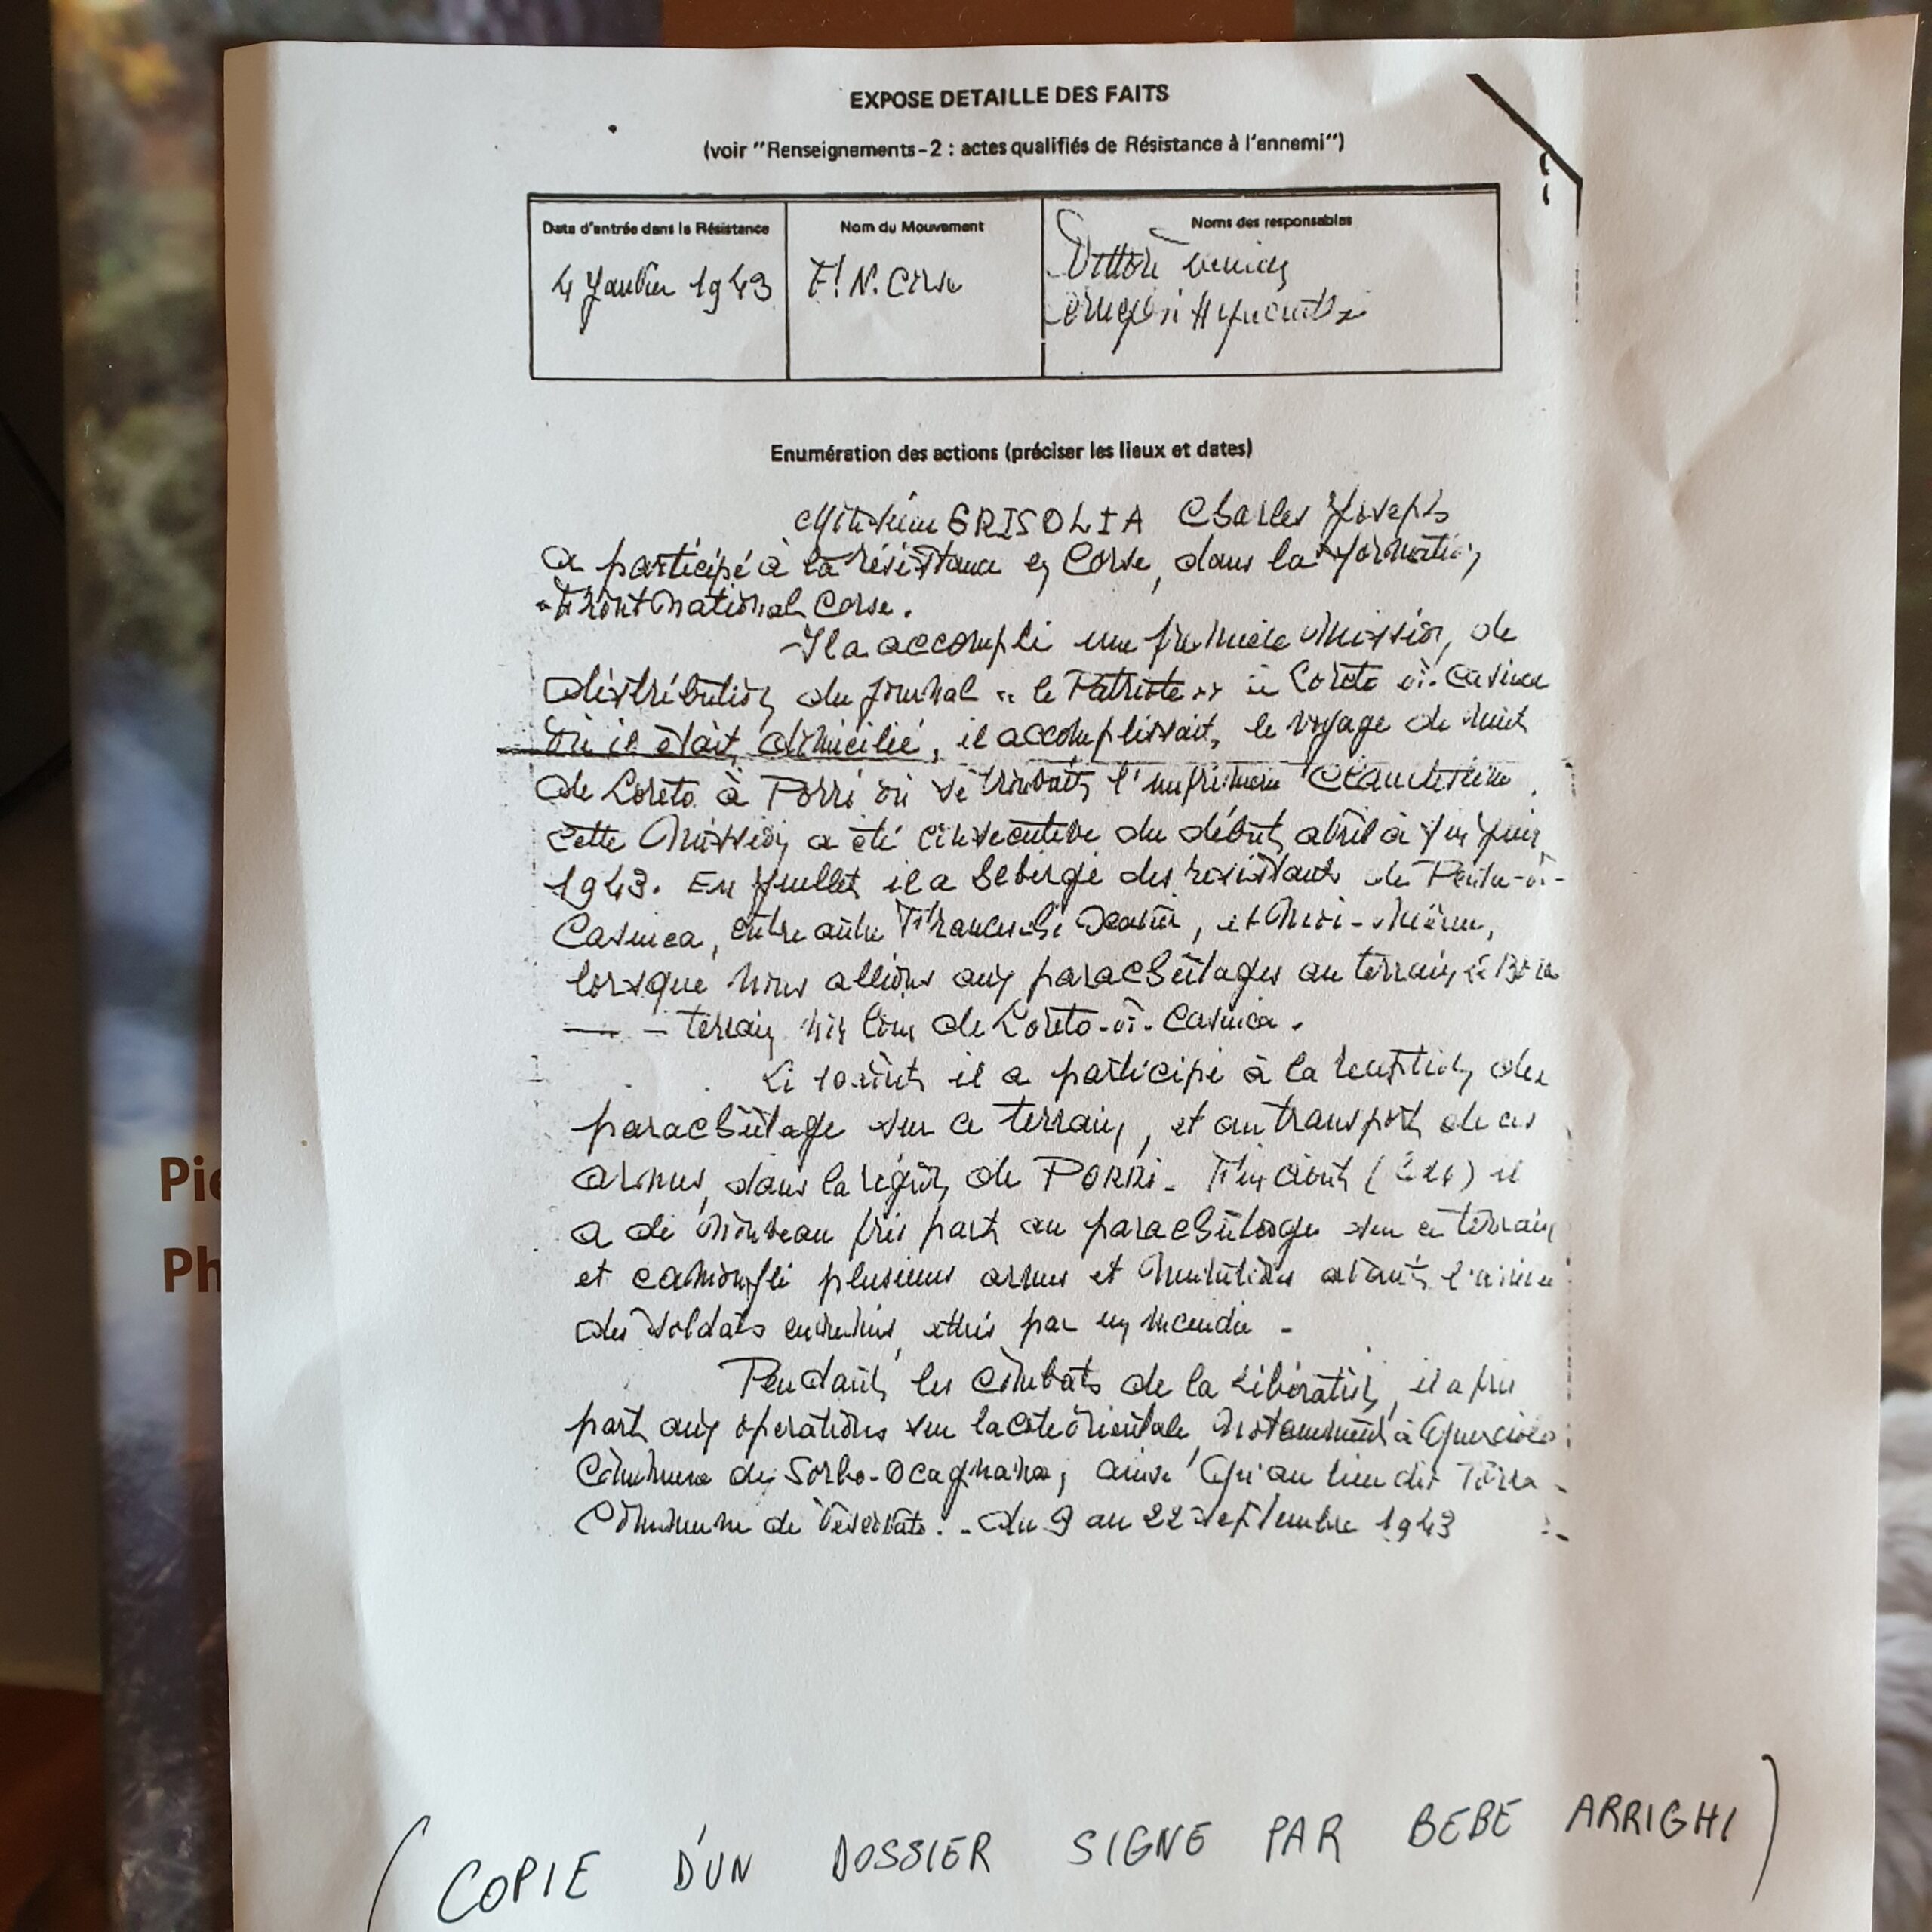 EXPOSE DETAILLE DES FAITS
(voir "Renseignements-2 : actes qualifiés de Résistance à l'ennemi")
Date d'entrée dans la Résistance
Nom du Mouvement
Noms des responsables
4 Janvier 1943
F.N. Corse
Vittori
Enumération des actions (préciser les lieux et dates)
Monsieur GRISOLIA Charles Joseph
a participé à la résistance en Corse, dans la formation
Front national Corse.
Il a accompli une première mission, de
distribution du journal "le Patriote" à Loreto di Casinca
où il était domicilié, il accomplissait, le voyage de nuit
de Loreto à Porri où se trouvait l'imprimerie clandestine.
Cette mission a été consécutive du début avril à fin juin
1943. En Juillet il a hébergé des résistants de Penta-di-
Casinca, entre autre Franceschi, et moi-même,
lorsque nous allions aux parachutages au terrain
terrain non loin de Loreto-di-Casinca.
Le 10 août il a participé à la réception des
parachutage sur ce terrain, et au transport de ces
armes, dans la région de PORRI. Fin août il
a de nouveau pris part au parachutage sur ce terrain
et camouflé plusieurs armes et munitions avant l'arrivée
des soldats ennemis, attirés par un incendie.
Pendant les combats de la Libération, il a pris
part aux opérations sur la côte orientale, notamment à Querciolo
Commune de Sorbo-Ocagnano, ainsi qu'au lieu dit Torra
Commune de Vescovato. du 9 au 22 septembre 1943
Pie
Ph
(COPIE D'UN DOSSIER SIGNE PAR BEBE ARRIGHI)